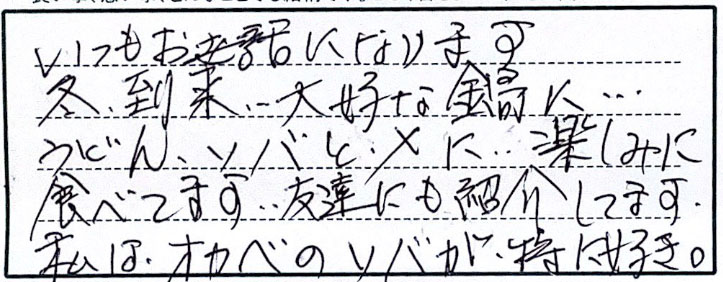 いつもお世話になります
冬、到来…大好な鍋に…
うどん、ソバと〆に…楽しみに
食べてます…友達にも紹介してます.
私は、オカベのソバが、特に好き。